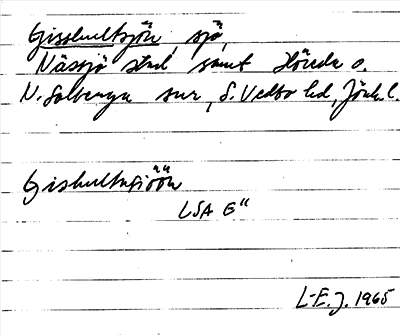 Gisshultsjön, sjö,
Nässjö stad samt Hönda o.
N. Solberga snr, S. Vedbo hd, Jönk. l.
Gishultasiöön
LSA E"
L-E. J. 1965